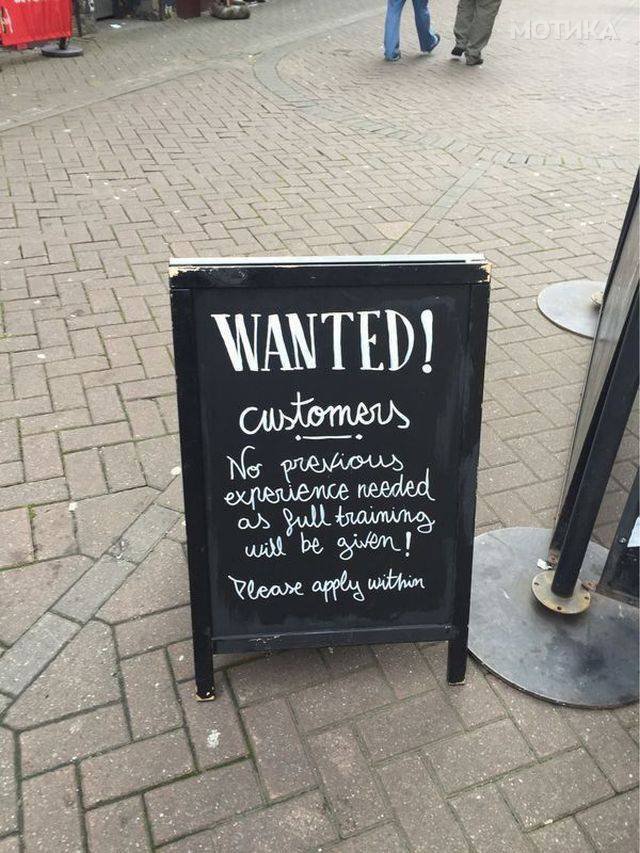 МОТИКА
WANTED!
customers
No previous
experience needed
as full training
will be given!
Please apply within